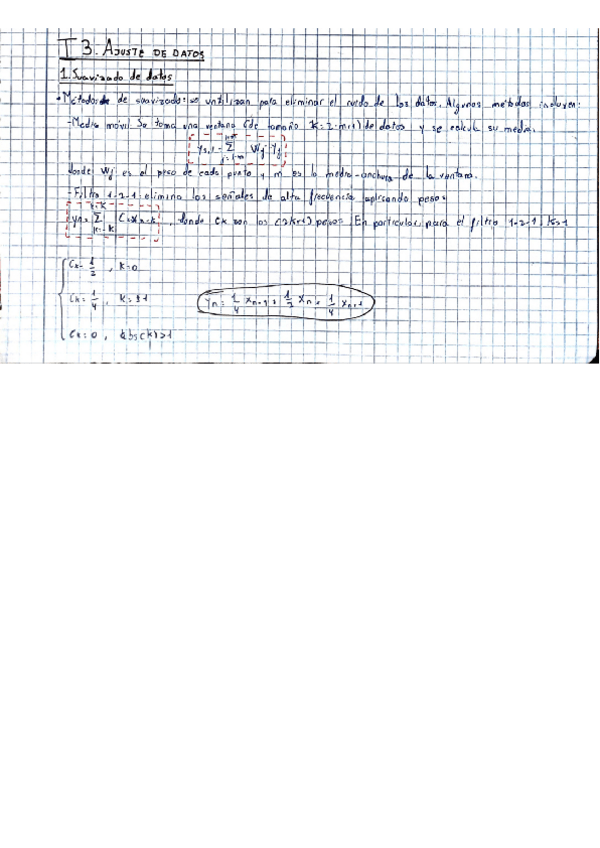 T3. AJUSTE DE DATOS
1. Suavizado de datos
• Métodos de suavizado: se untilizan para eliminar el ruido de los datos. Algunos métodos incluyen:
- Media móvil Se toma una ventana (de tamaño K=2·m+1) de datos y se calcula su media.
j=i-m Wj·yj
donde Wj es el peso de cada punto y m es la media-anchura de la ventana.
- Filtro 1-2-1 elimina las señales de alta frecuencia aplicando pesos
yn = Σ k=-K Ck xn-k, donde Ck son los (2K+1) pesos En particular, para el filtro 1-2-1, K=1
Ck = 1/2, K=0
Ck = 1/4, K=±1 yn = 1/4 xn-1 + 1/2 xn + 1/4 xn+1
Ck=0, abs(k)>1